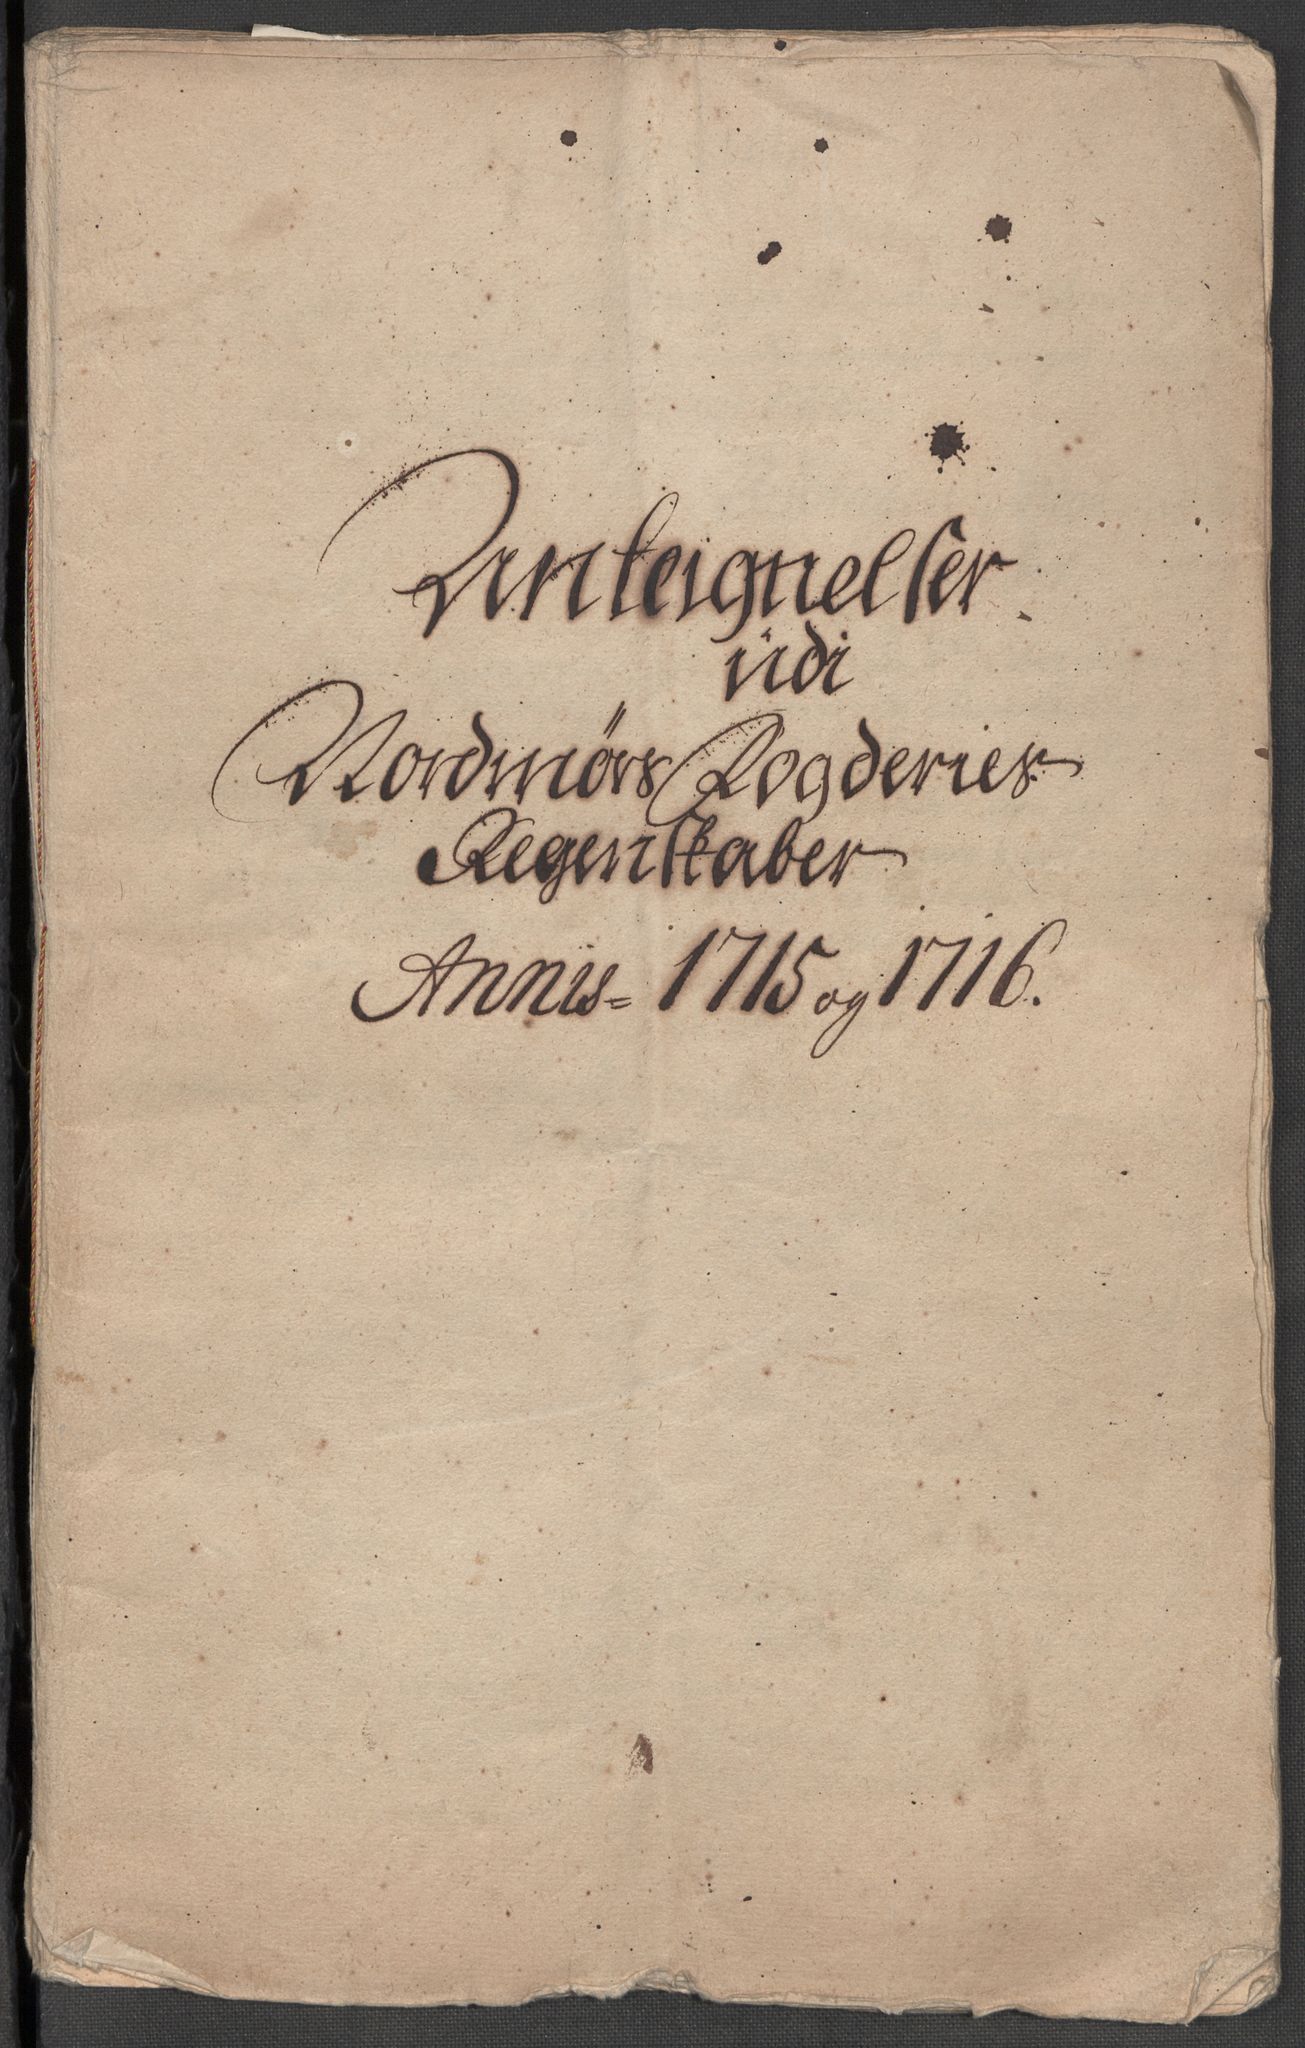 Anteignelser
udi
Nordmörs Fogderies
Regenskaber
Annis= 1715 og 1716.